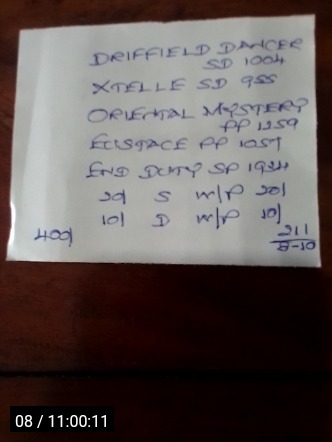 DRIFFIELD DANCER
SD 1004
XTELLE SD 955
ORIENTAL MYSTERY
PP 1259
EUSTACE PP 1057
END DUTY SP 1924
20/ S W/P 20/
10/ D W/P 10/
400/
211
8-10
08 / 11:00:11